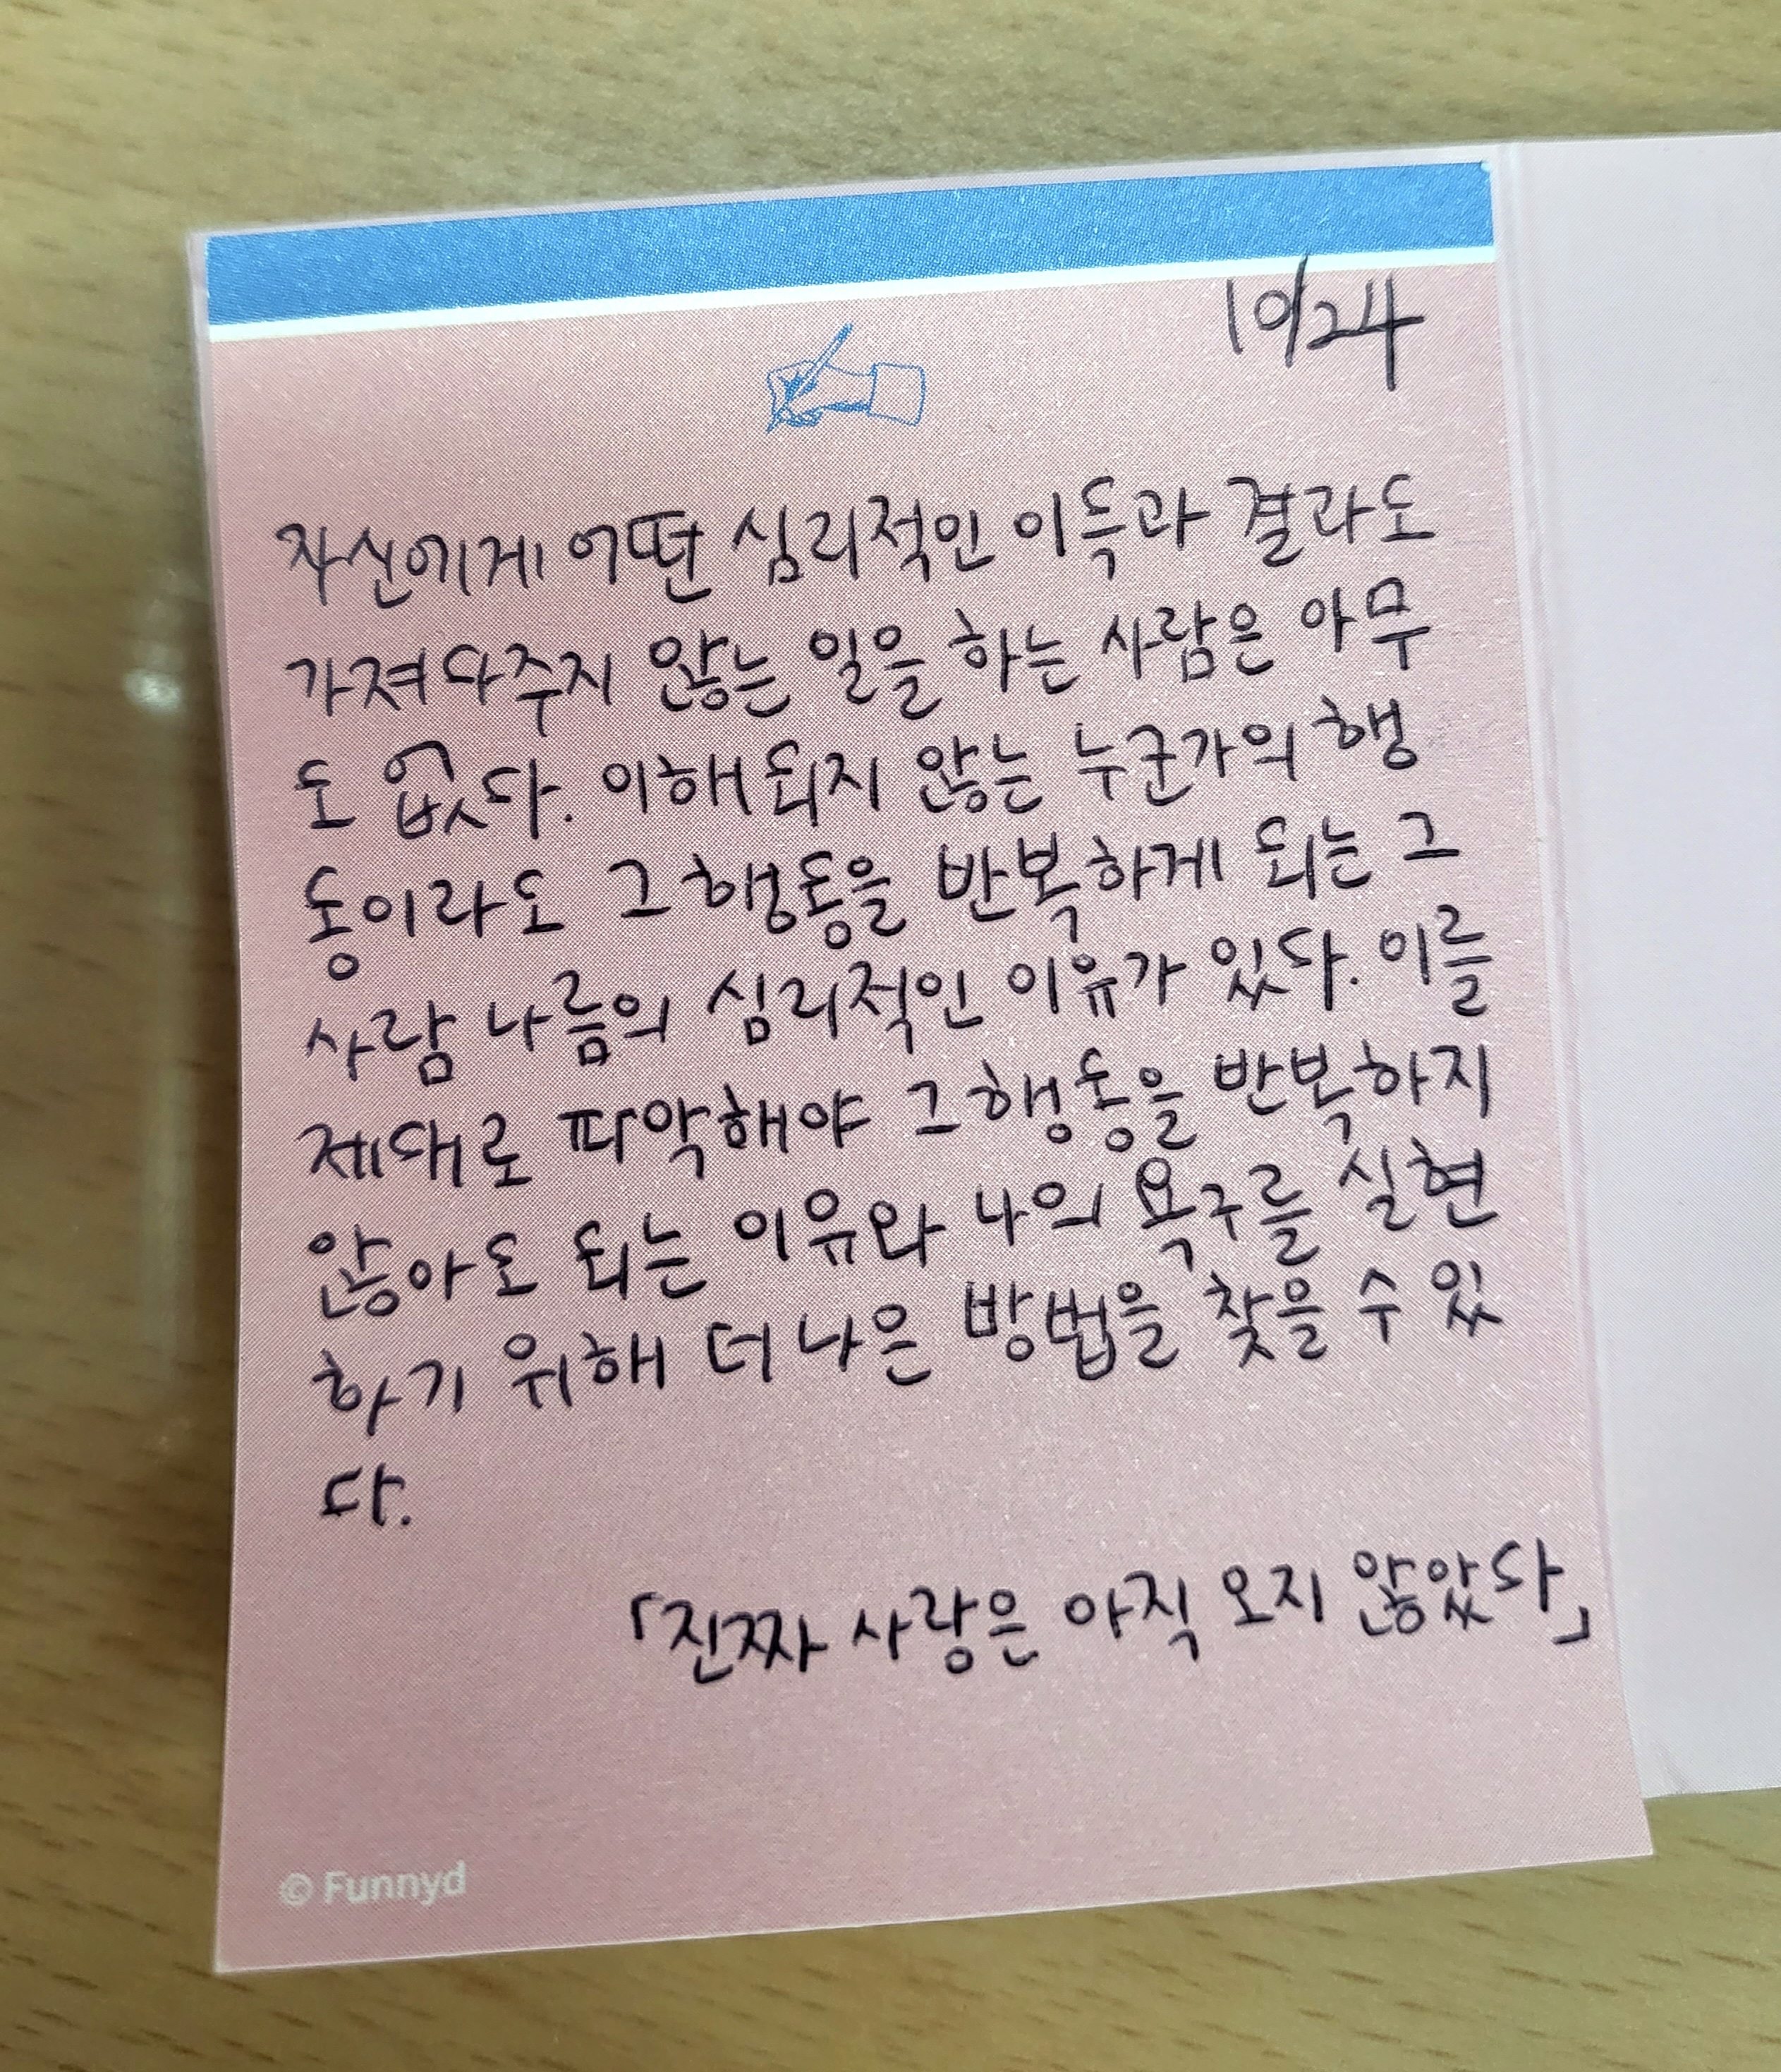 10/24
자신에게 어떤 심리적인 이득과 결과도
가져다주지 않는 일을 하는 사람은 아무
도 없다. 이해되지 않는 누군가의 행
동이라도 그 행동을 반복하게 되는 그
사람 나름의 심리적인 이유가 있다. 이를
제대로 파악해야 그 행동을 반복하지
않아도 되는 이유와 나의 욕구를 실현
하기 위해 더 나은 방법을 찾을 수 있
다.
「진짜 사랑은 아직 오지 않았다」
© Funnyd